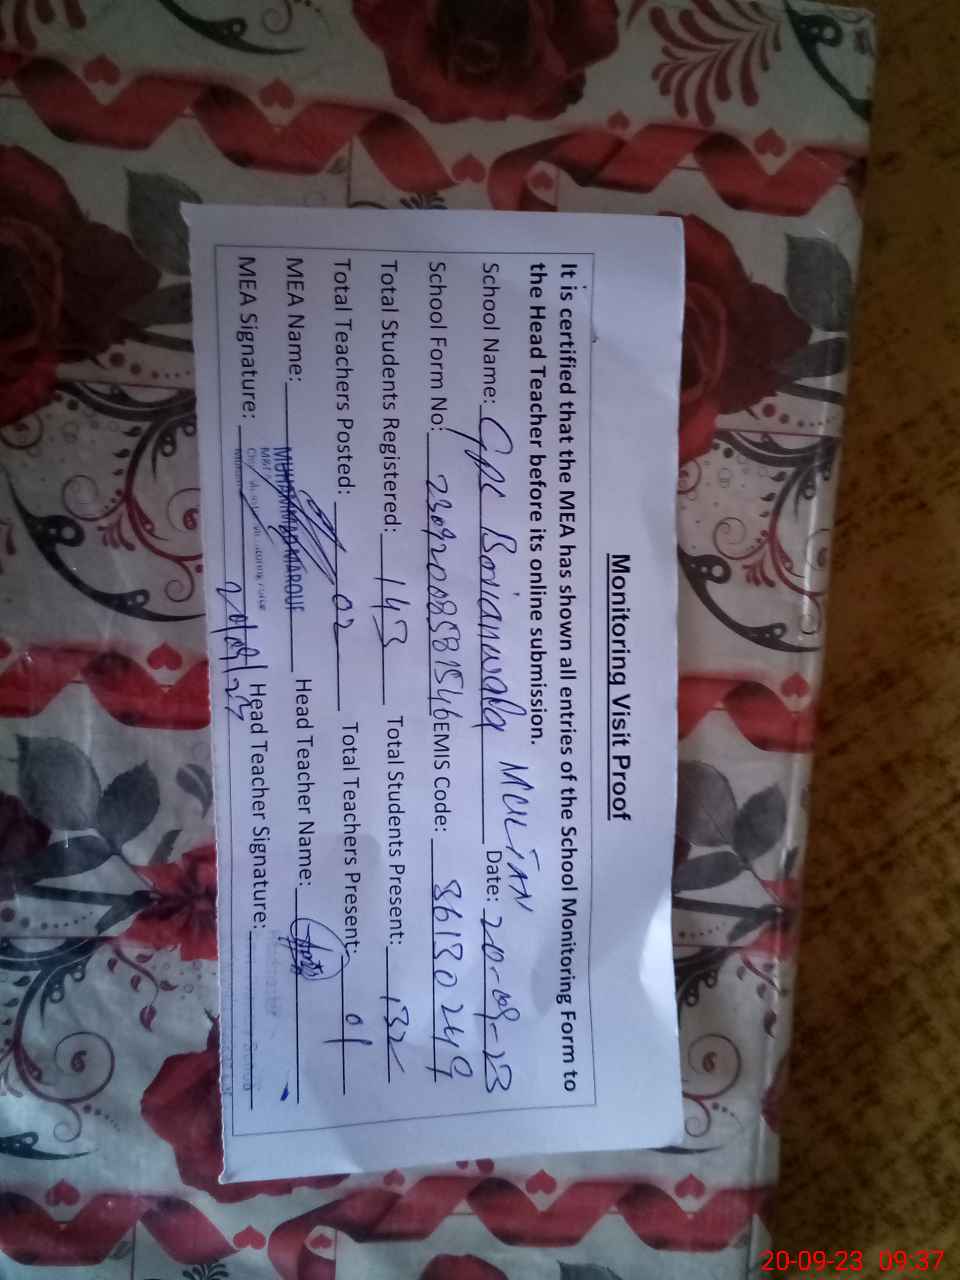 Monitoring Visit Proof
It is certified that the MEA has shown all entries of the School Monitoring Form to
the Head Teacher before its online submission.
School Name: GPS Bonianwala MULTAN Date: 20-09-23
School Form No: 23092008581546 EMIS Code: 36130249
Total Students Registered: 143 Total Students Present: 132
Total Teachers Posted: 02 Total Teachers Present: 01
MEA Name: MUHAMMAD MAROUF Head Teacher Name:
MEA Signature: 20/09/23 Head Teacher Signature:
20-09-23 09:37